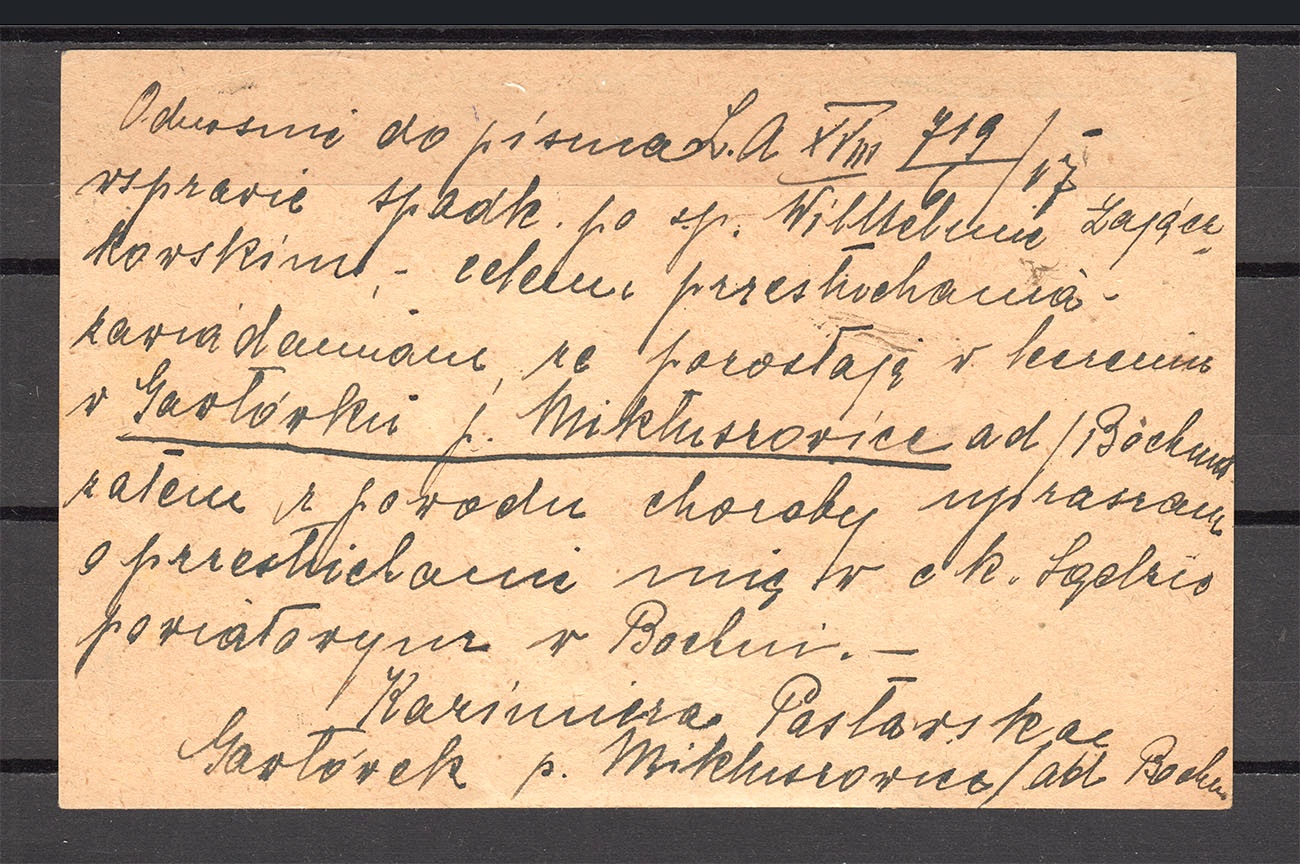 Odnośnie do pisma L. A XVIII 719/6/17
w sprawie spadk. po ś.p. Wilhelmie Zającz-
kowskim, – celem przesłuchania –
zawiadamiam, że pozostają w
w Gawłówku p. Mikłuszowice ad/Bochnia
zatem z powodu choroby upraszam
o przesłuchanie mię w c k. Sądzie
powiatowym w Bochni. –
Kazimiera Pasławska
Gawłówek p. Mikłuszowice/ad Bochnia